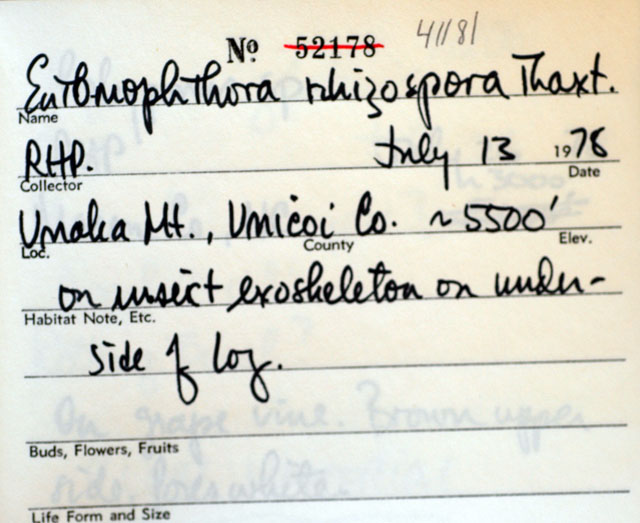 Nº 52178 41181
Entomophthora rhizospora Thaxt.
Name
RHP. July 13 1978
Collector Date
Unaka Mt., Unicoi Co. ~5500'
Loc. County Elev.
on insect exoskeleton on under-
Habitat Note, Etc.
side of log.
On grape vine. Brown upper
Buds, Flowers, Fruits
side
Life Form and Size